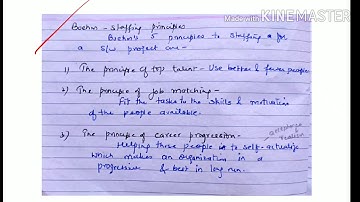 Made with
KINEMASTER
Boehm - staffing principles
Boehm's 5 principles to staffing for
a s/w project are -
1) The principle of top talent - Use better & fewer people
2) The principle of job matching -
Fit the tasks to the skills & motivation
of the people available.
3) The principle of career progression -
Helping those people in to self-actualize
which makes an organisation in a
progressive & best in long run.